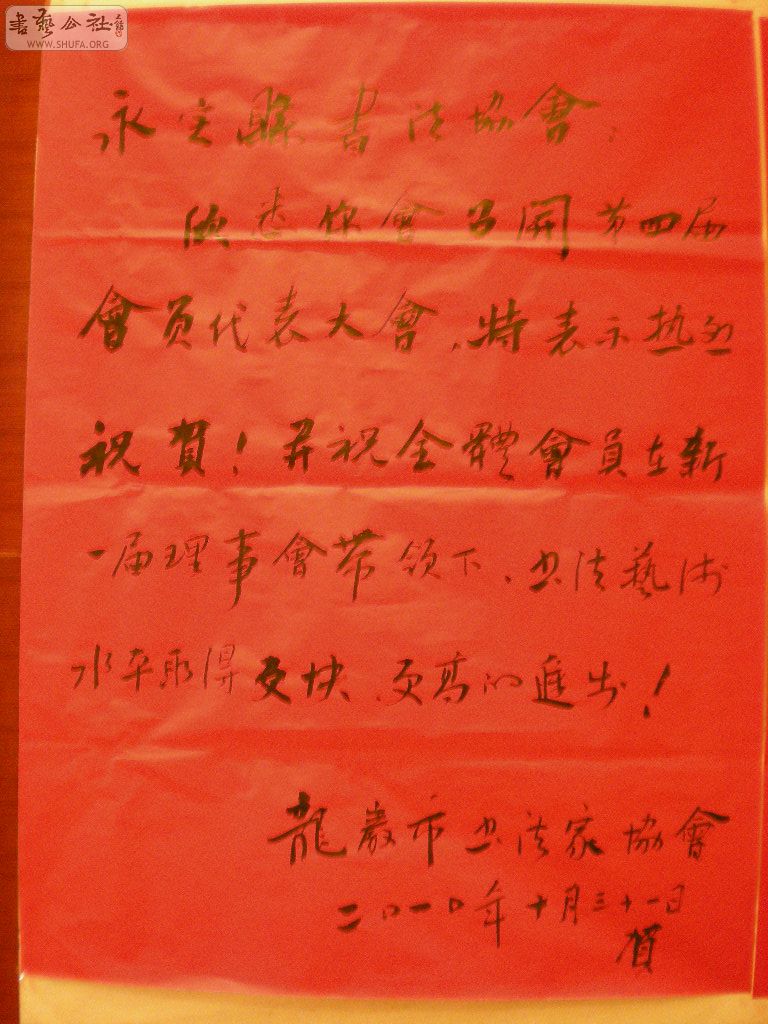 書藝公社
WWW.SHUFA.ORG
永定縣書法協會：
欣悉你會召開第四届
會员代表大會，特表示热烈
祝賀！并祝全體會員在新
一届理事會带领下，书法藝術
水平取得更快、更高的進步！
龍巖市书法家協會
二〇一〇年十月三十一日
賀